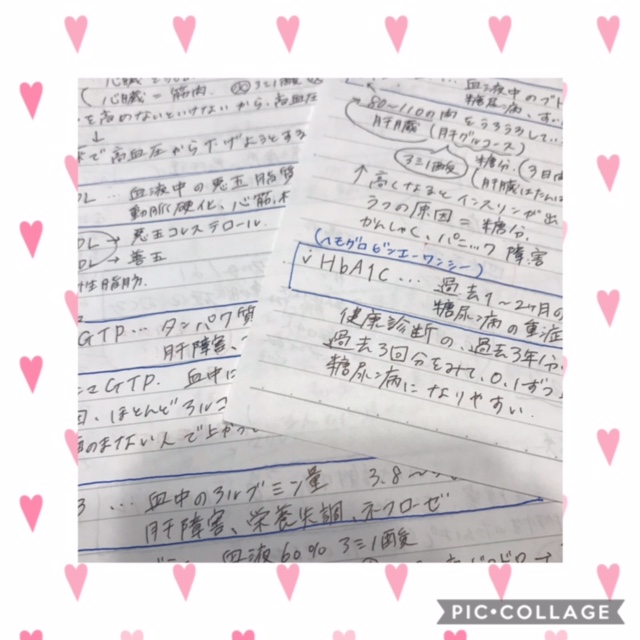 (心臓 = 筋肉.
を高めないといけないから、高血圧
↓
で高血圧から下げようとする
DL … 血液中の悪玉脂質
動脈硬化、心筋
DL → 悪玉コレステロール.
DL → 善玉
性脂肪.
GTP… タンパク質
肝障害、
GTP. 血中に
ほとんどアルコ
のまない人で上がっ
… 血中のアルブミン量 3.8〜
肝障害、栄養失調、ネフローゼ
血液60%
… 血液中のブド
糖尿病、すい
80〜110の間をうろうろして…
肝臓 (肝グルコース)
糖分.
↑高くなるとインスリンが出
うつの原因 = 糖分.
かんしゃく、パニック障害
(ヘモグロビンエーワンシー)
HbA1c… 過去1〜2ヶ月の
糖尿病の重症
健康診断の、過去3年分.
過去3回分をみて、0.1ずつ上
糖尿病になりやすい.
PIC•COLLAGE